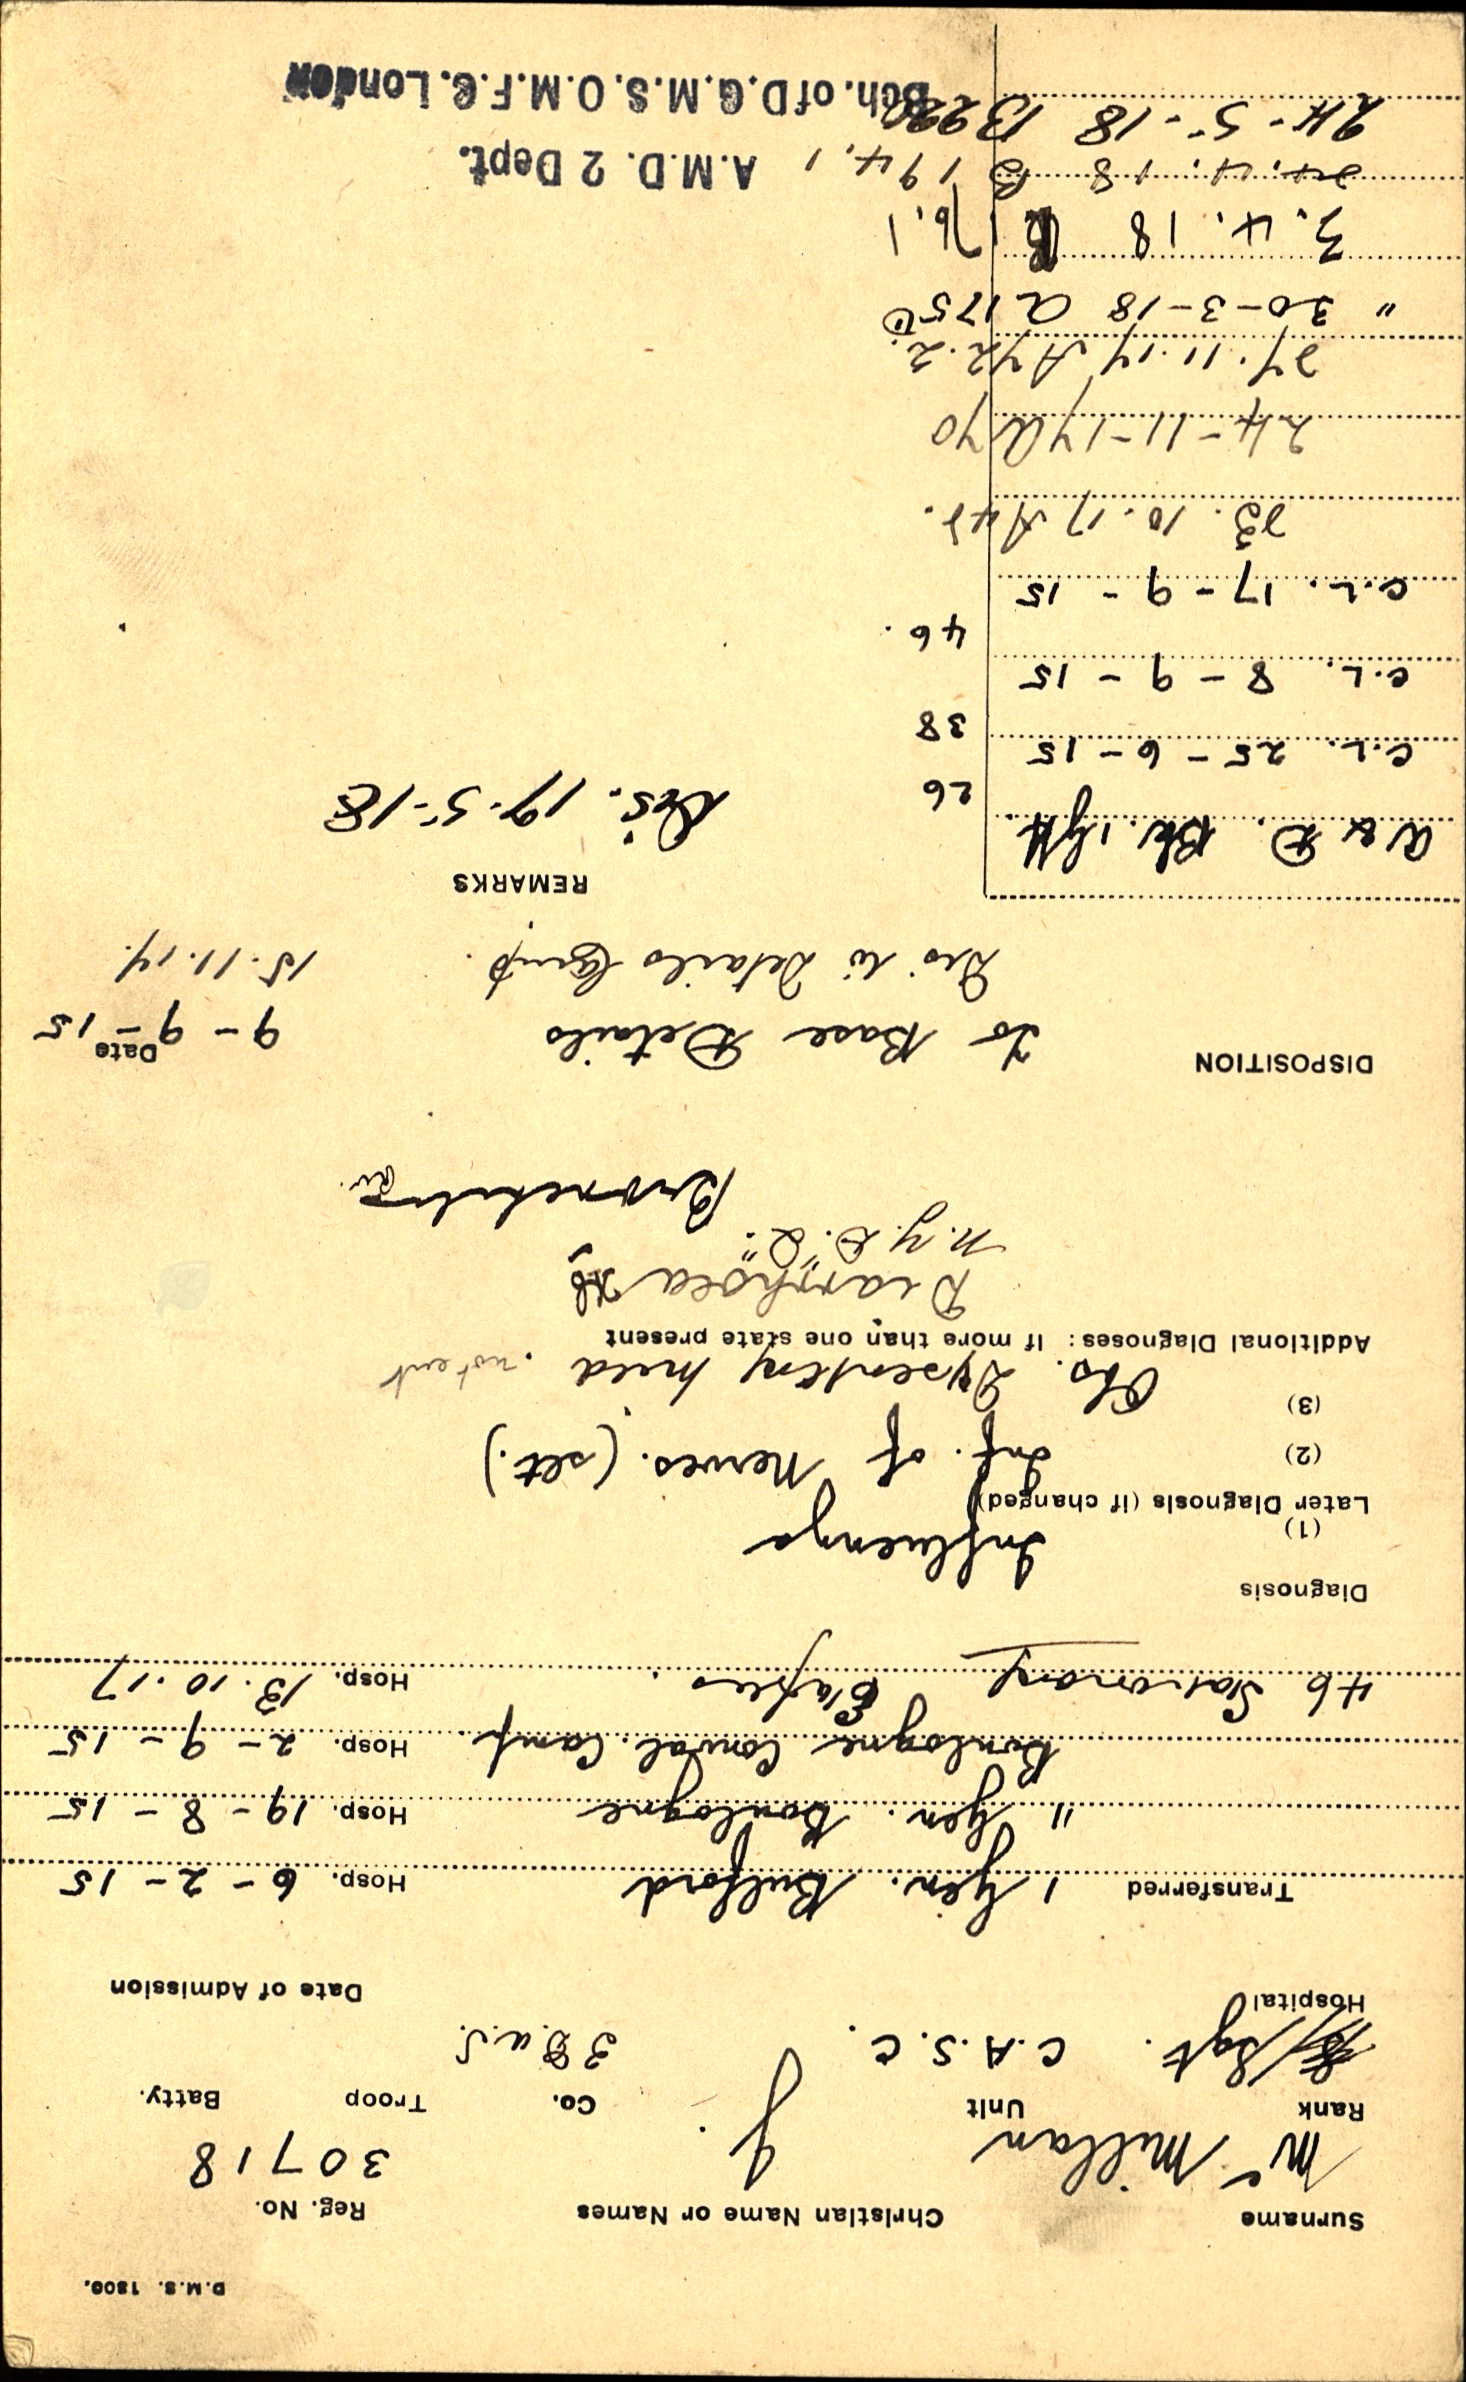 D.M.S. 1300.
Surname Christian Name or Names Reg. No.
Mc Millan J. 30718
Rank Unit Co. Troop Batty.
/Sgt. C.A.S.C. 3 D.U.S.
Hospital Date of Admission
Transferred 1 Gen. Bulford Hosp. 6 - 2 - 15
11 Gen. Boulogne Hosp. 19 - 8 - 15
Boulogne Conval. Camp. Hosp. 2 - 9 - 15
46 Stationary Etaples. Hosp. 13.10.17
Diagnosis
(1) Influenza
Later Diagnosis (if changed)
(2) Inf. of Nerves. (slt.)
(3) Obs. Dysentery
Additional Diagnoses: If more than one state present
Diarrhoea
N.Y.D. "
Bronchitis
DISPOSITION To Base Details Date 9 - 9 - 15
Dis to Details Camp. 15.11.17.
REMARKS
A & D. Bk. 1 GH. 26 Dis. 17-5-18
C.L. 25 - 6 - 15 38
C.L. 8 - 9 - 15 46.
C.L. 17 - 9 - 15
23.10.17 A 42.
24-11-17 A 70
27.11.17 A 72.2.
" 30-3-18 A 175
3.4.18 176.1
24.4.18 B 194.1 A.M.D. 2 Dept.
24-5-18 B Bch. of D.G.M.S. O.M.F.C. London